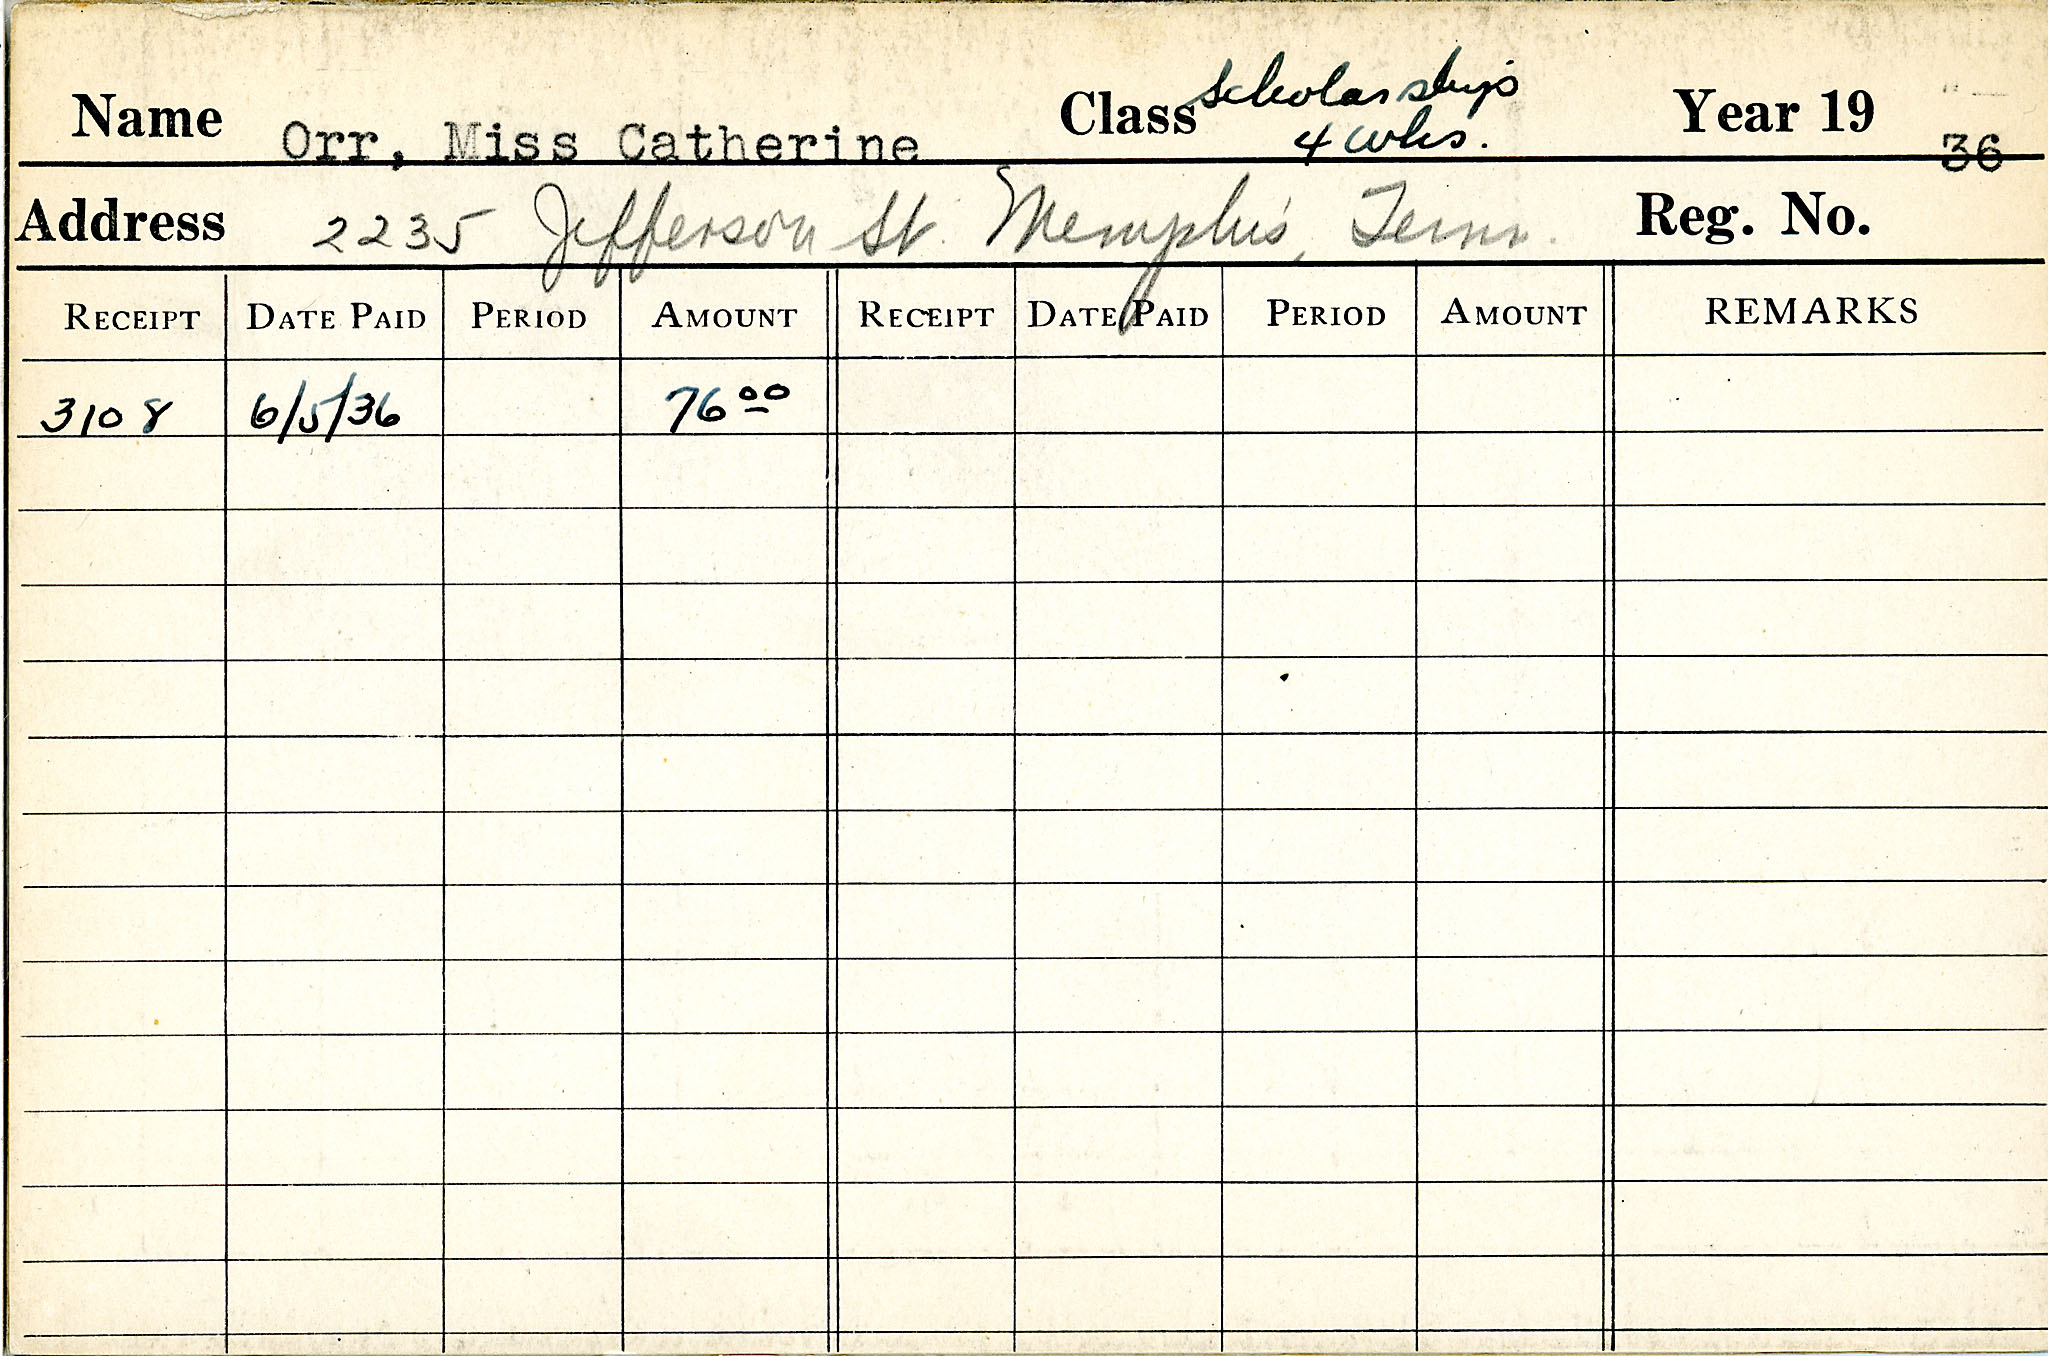 Name Orr, Miss Catherine Class Scholarship Year 19 36
4 wks.
Address 2235 Jefferson St. Memphis, Tenn. Reg. No.
RECEIPT DATE PAID PERIOD AMOUNT RECEIPT DATE PAID PERIOD AMOUNT REMARKS
3108 6/5/36 76 00